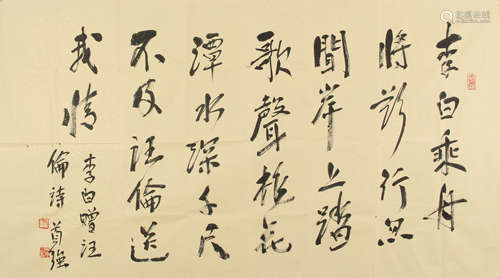 李白乘舟
將欲行忽
聞岸上踏
歌聲桃花
潭水深千尺
不及汪倫送
我情
李白贈汪
倫詩